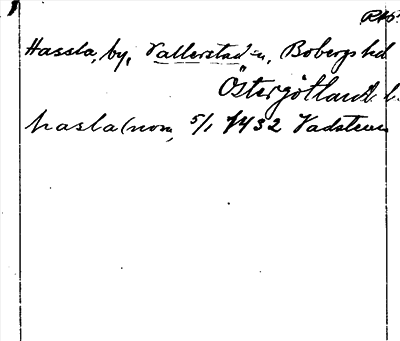 Hassla, by, Vallerstad sn, Bobergs hd
Östergötlands l.
hasla (nom, 5/1 1432 Vadstena